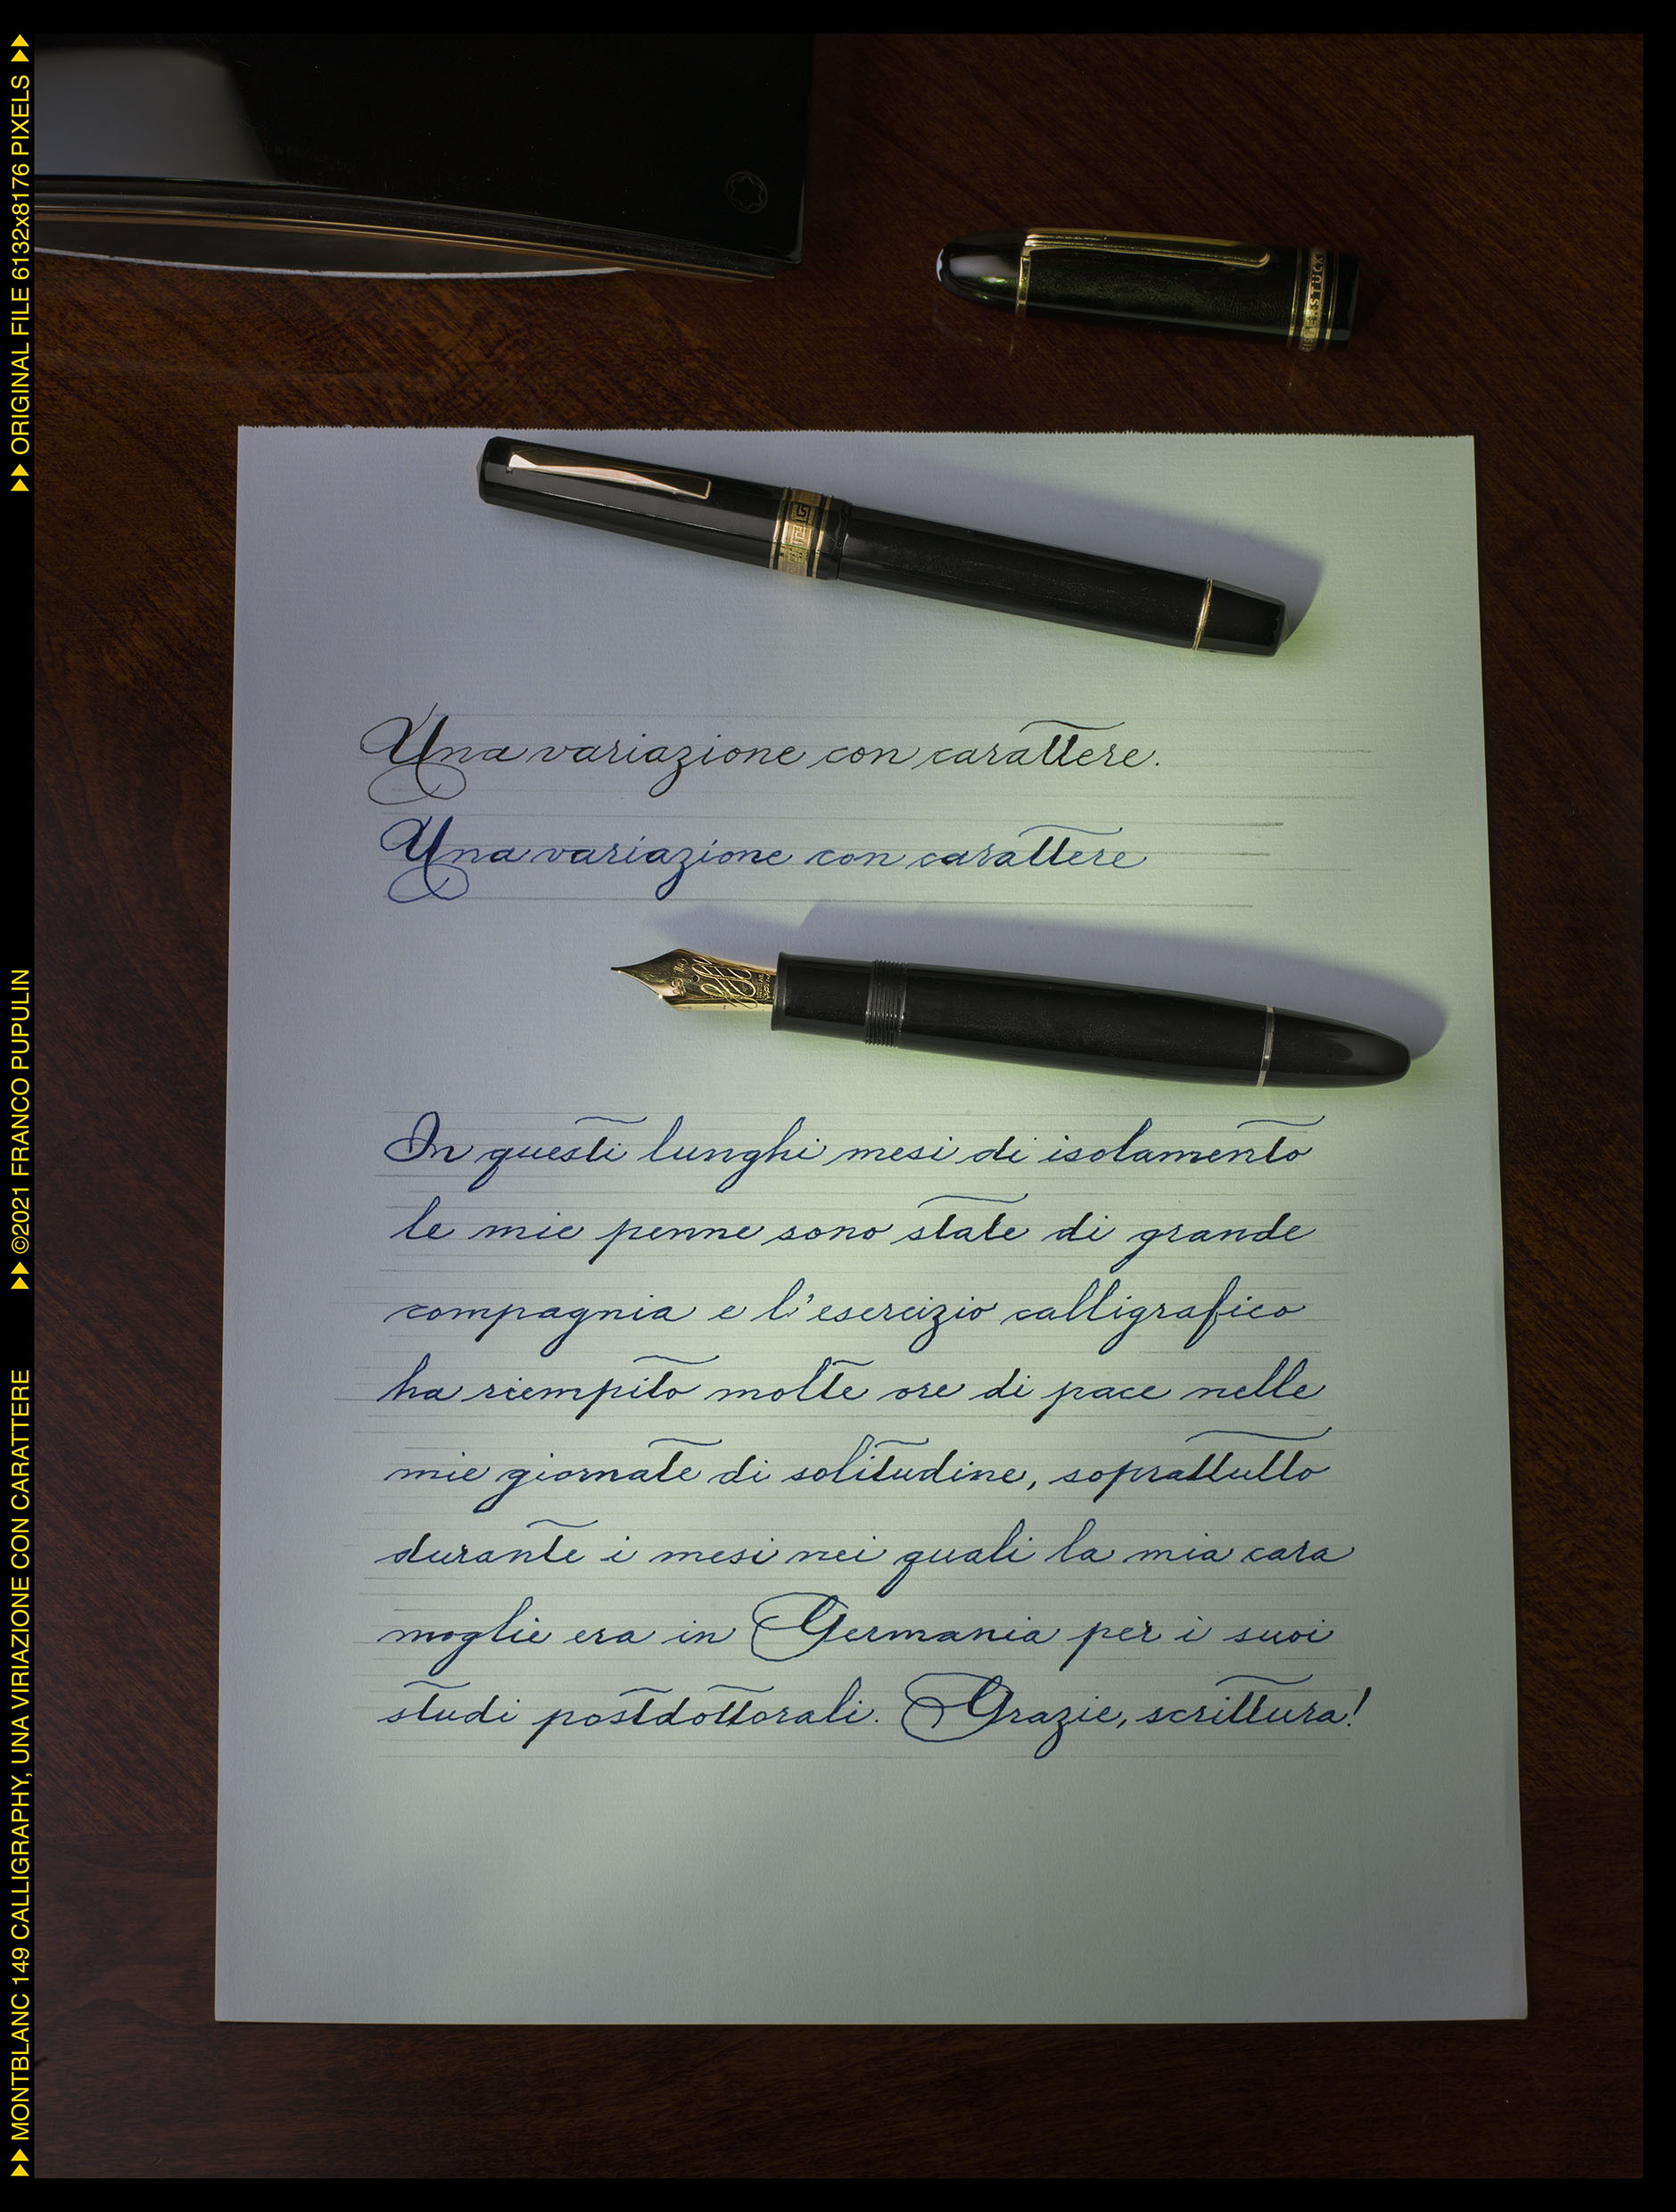 ▶▶ MONTBLANC 149 CALLIGRAPHY, UNA VIRIAZIONE CON CARATTERE ▶▶ ©2021 FRANCO PUPULIN ▶▶ ORIGINAL FILE 6132x8176 PIXELS ▶▶
Una variazione con carattere.
Una variazione con carattere
In questi lunghi mesi di isolamento
le mie penne sono state di grande
compagnia e l'esercizio calligrafico
ha riempito molte ore di pace nelle
mie giornate di solitudine, soprattutto
durante i mesi nei quali la mia cara
moglie era in Germania per i suoi
studi postdottorali. Grazie, scrittura!